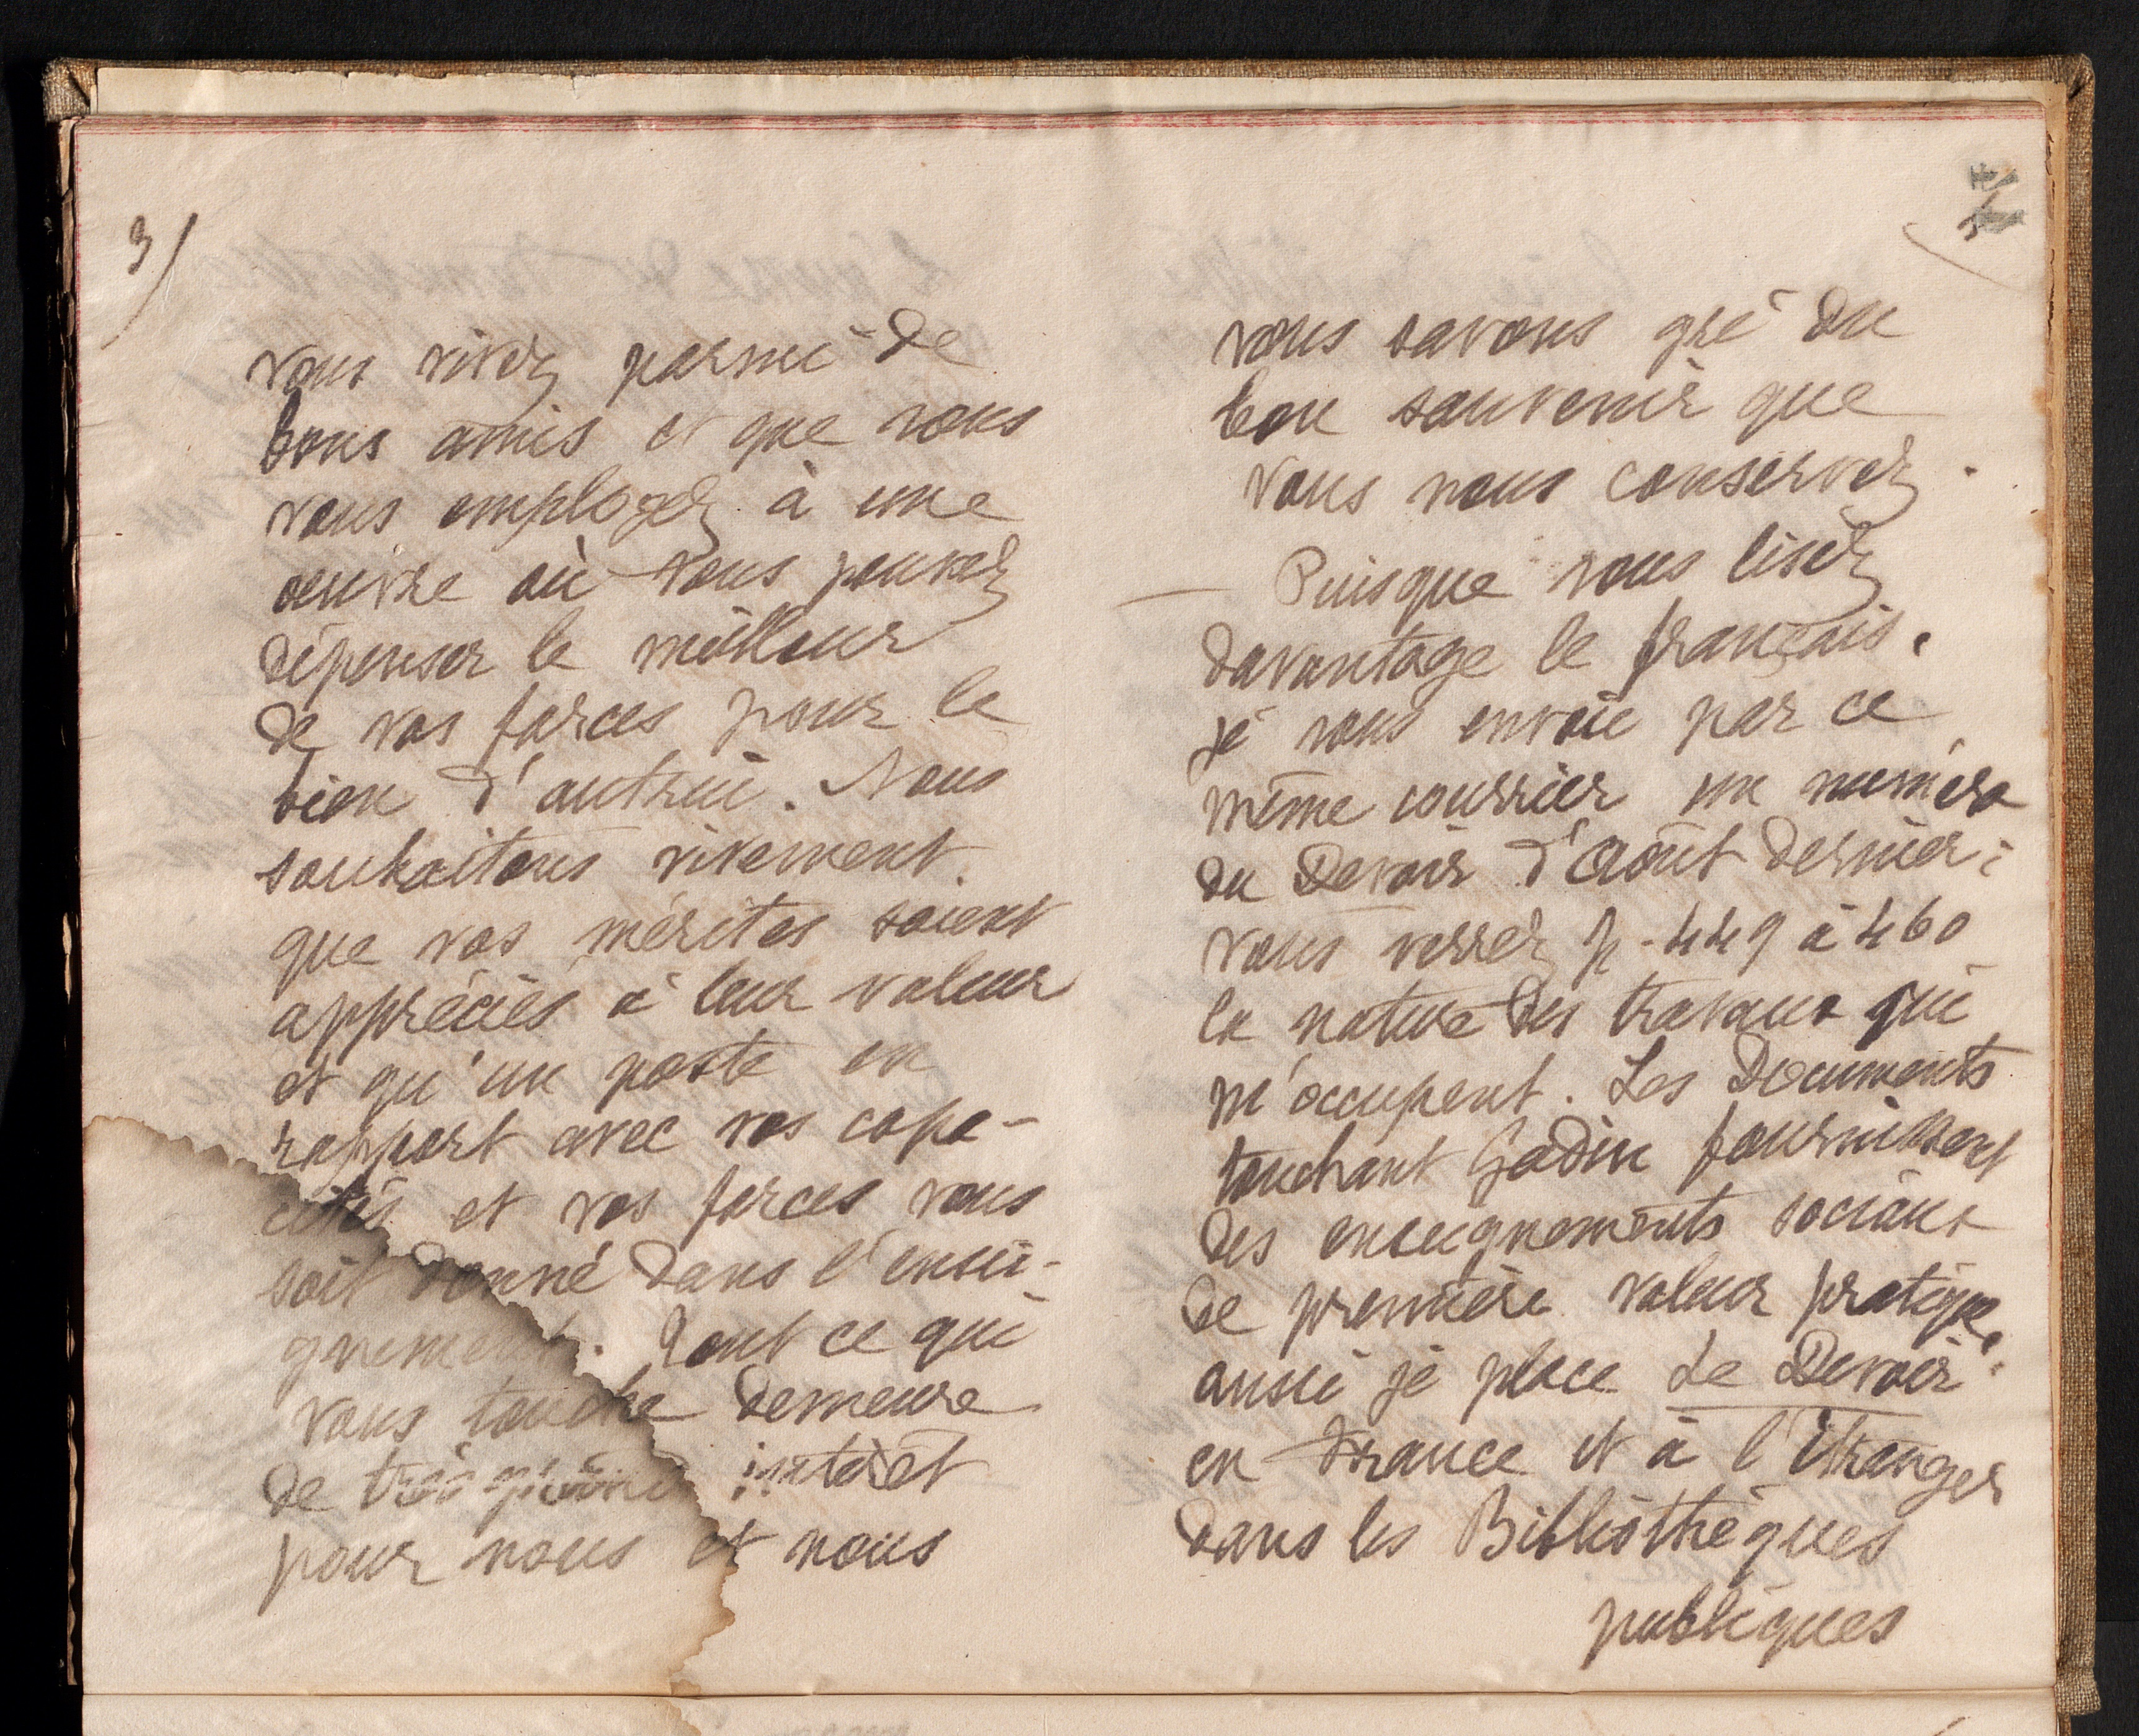 3/
vous vivez parmi de
bons amis et que vous
vous employez à une
oeuvre où vous pouvez
dépenser le meilleur
de vos forces pour le
bien d'autrui. Nous
souhaitons vivement
que vos mérites soient
appréciés à leur valeur
et qu'un poste en
rapport avec vos capa-
cités et vos forces vous
soit donné dans l'ensei-
gnement. Tout ce qui
vous touche demeure
de très grand intérêt
pour nous et nous
vous savons gré du
bon souvenir que
vous nous conservez.
— Puisque vous lisez
davantage le français,
je vous envoie par ce
même courrier un numéro
du Devoir d'août dernier:
vous verrez p. 449 à 460
la nature des travaux qui
m'occupent. Les Documents
touchant Godin fournissent
des enseignements sociaux
de première valeur pratique,
aussi je place Le Devoir
en France et à l'Etranger
dans les Bibliothèques
publiques